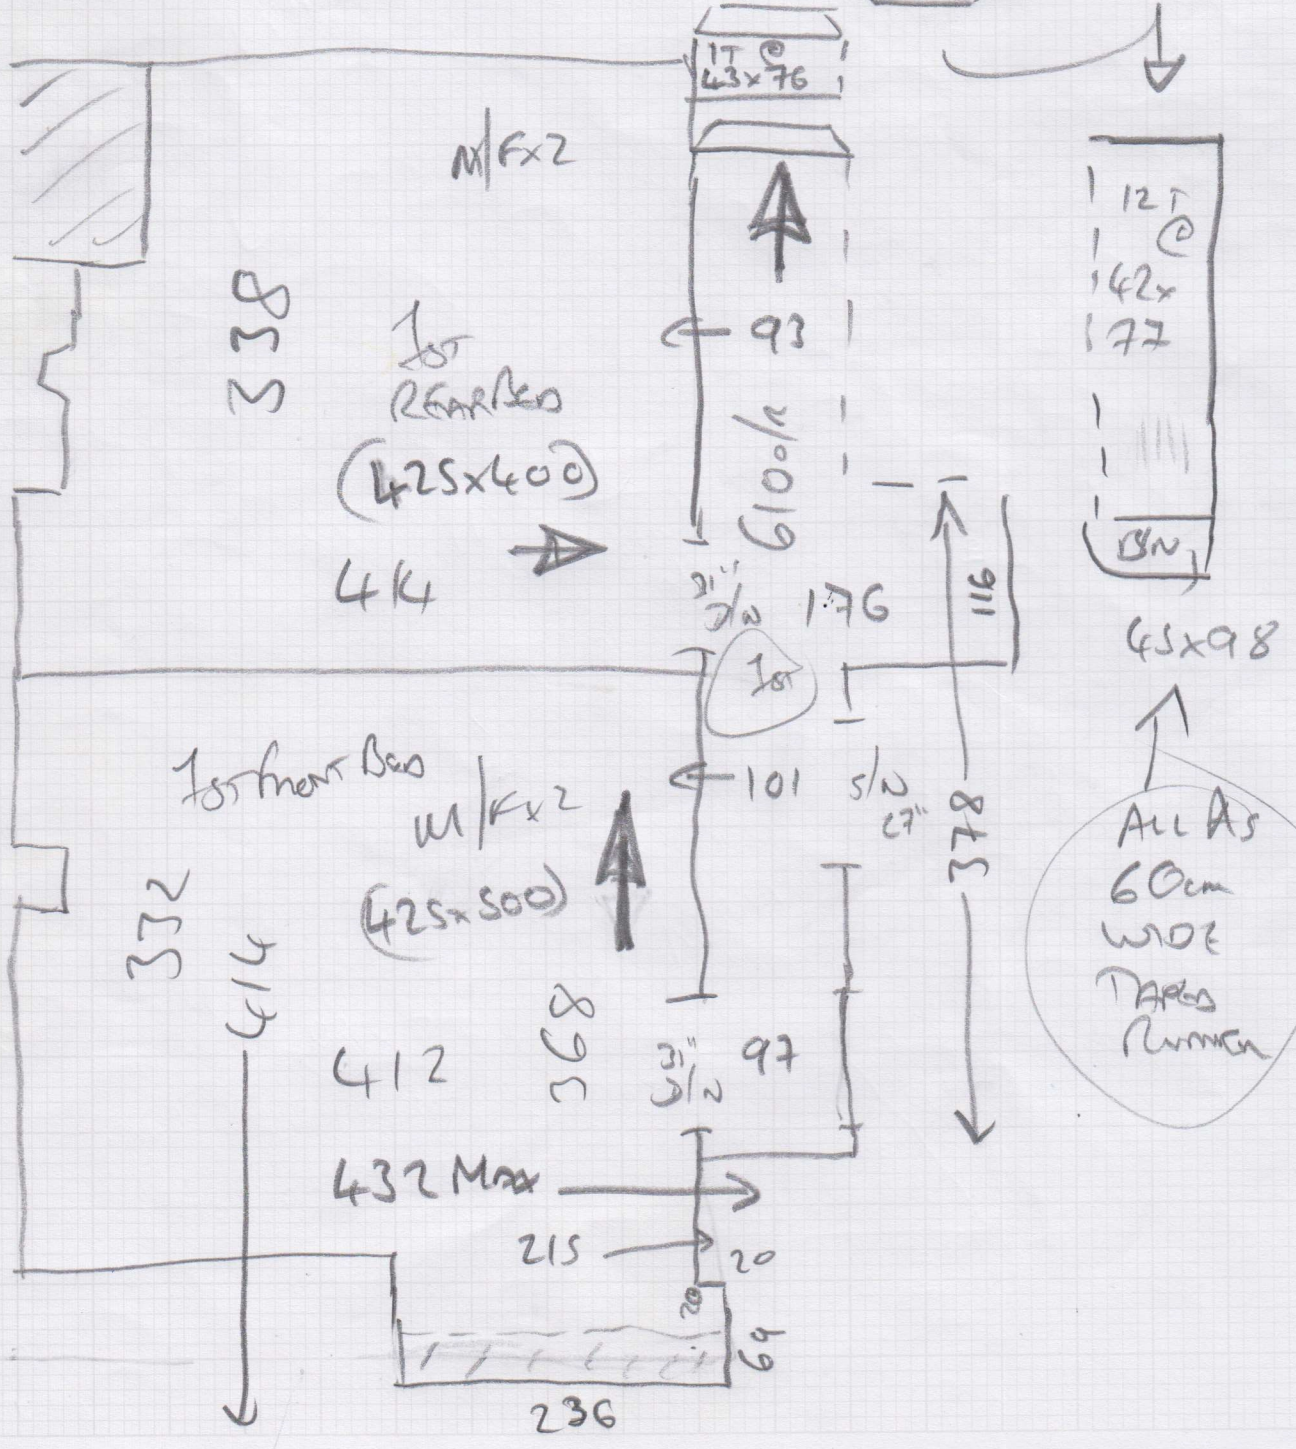 1T @
43x76
M/Fx2
12T
@
42x
77
338
93
1ST
REAR BED
(425x400)
610o/R
414
31"
D/N
176
116
B/N
45x98
1ST
1ST FRONT BED
M/Fx2
101
S/N
27"
378
ALL AS
60cm
WIDE
TAPED
RUNNER
(425x500)
332
414
368
412
31"
D/N
97
432 MAX
215
20
20
69
236